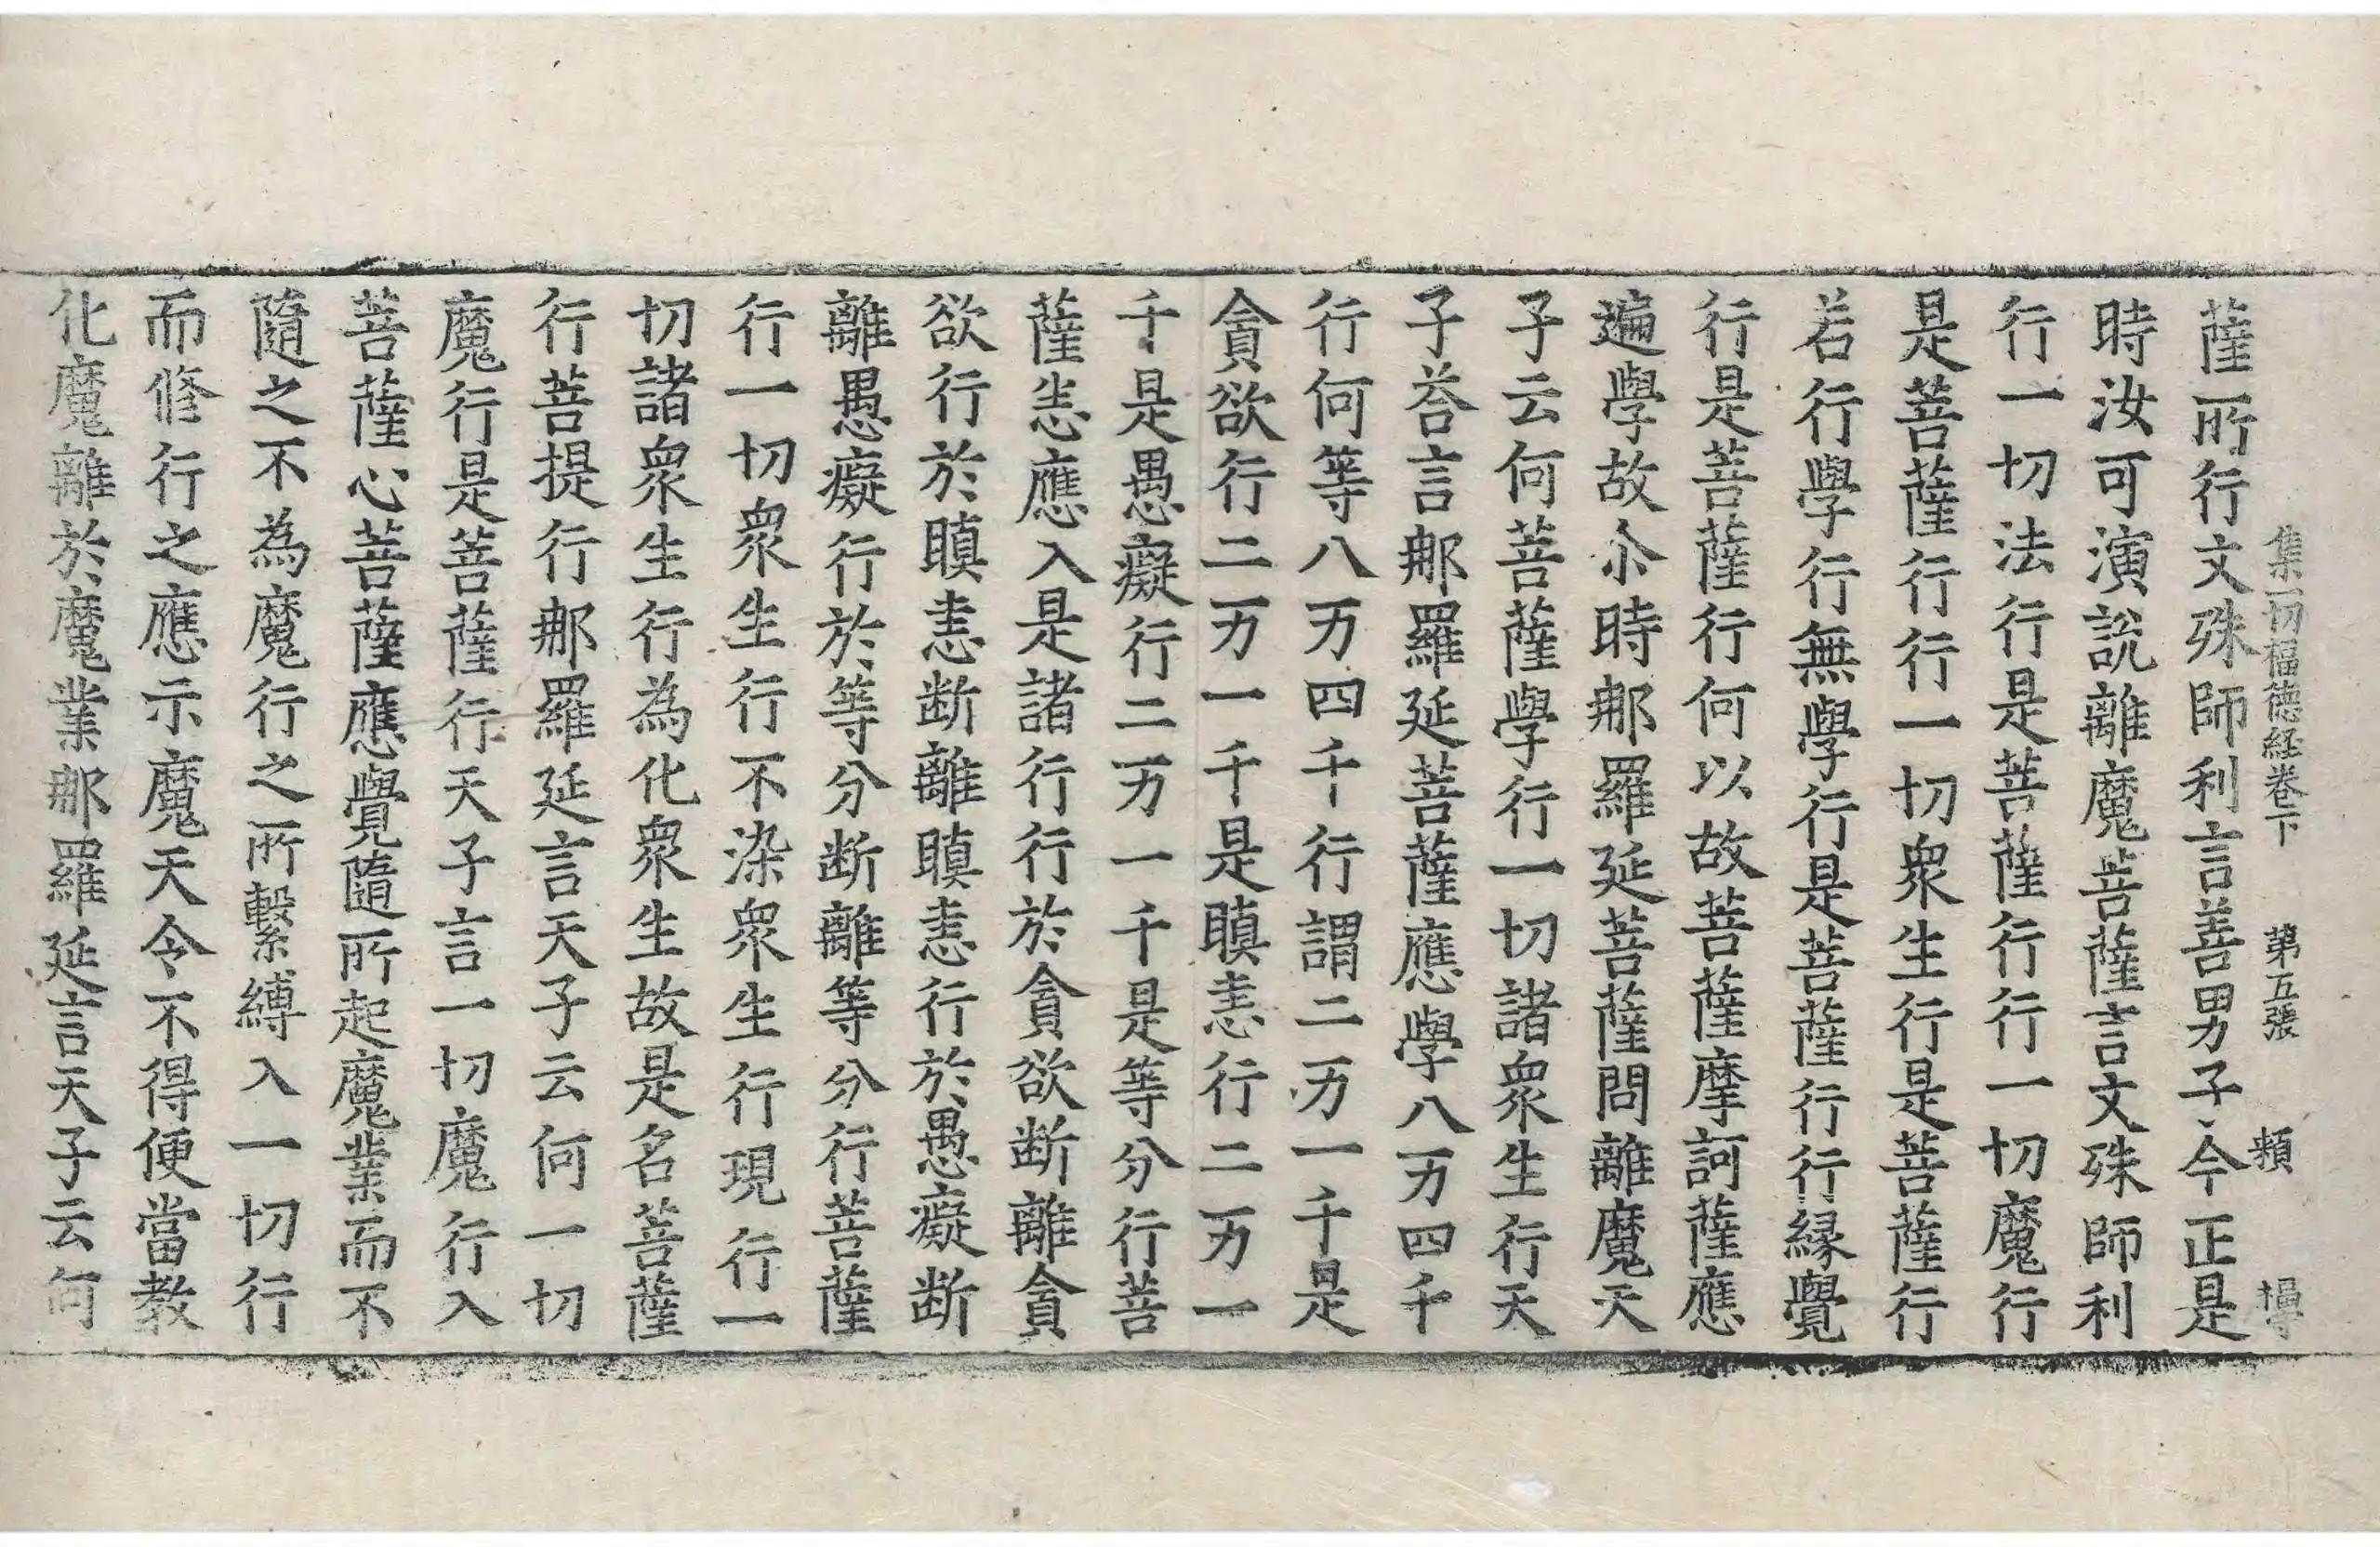 集一切福德経卷下 第五張 頬
薩所行文殊師利言善男子今正是
時汝可演說離魔菩薩言文殊師利
行一切法行是菩薩行行一切魔行
是菩薩行行一切衆生行是菩薩行
若行學行無學行是菩薩行行縁覺
行是菩薩行何以故菩薩摩訶薩應
遍學故尒時那羅延菩薩問離魔天
子云何菩薩學行一切諸衆生行天
子荅言那羅延菩薩應學八万四千
行何等八万四千行謂二万一千是
貪欲行二万一千是瞋恚行二万一
千是愚癡行二万一千是等分行菩
薩恚應入是諸行行於貪欲断離貪
欲行於瞋恚断離瞋恚行於愚癡断
離愚癡行於等分断離等分行菩薩
行一切衆生行不染衆生行現行一
切諸衆生行為化衆生故是名菩薩
行菩提行那羅延言天子云何一切
魔行是菩薩行天子言一切魔行入
菩薩心菩薩應覺隨所起魔業而不
隨之不為魔行之所繫縛入一切行
而修行之應示魔天令不得便當教
化魔離於魔業那羅延言天子云何